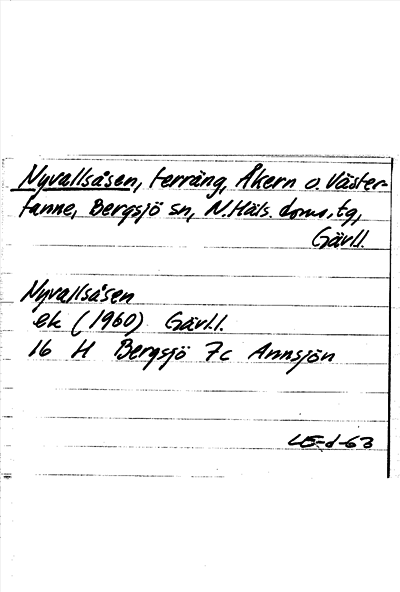 Nyvallsåsen, terräng, Åkern o. Väster-
tanne, Bergsjö sn, N.Häls. doms.tg,
Gävl.l.
Nyvallsåsen
ek (1960) Gävl.l.
16 H Bergsjö 7c Annsjön